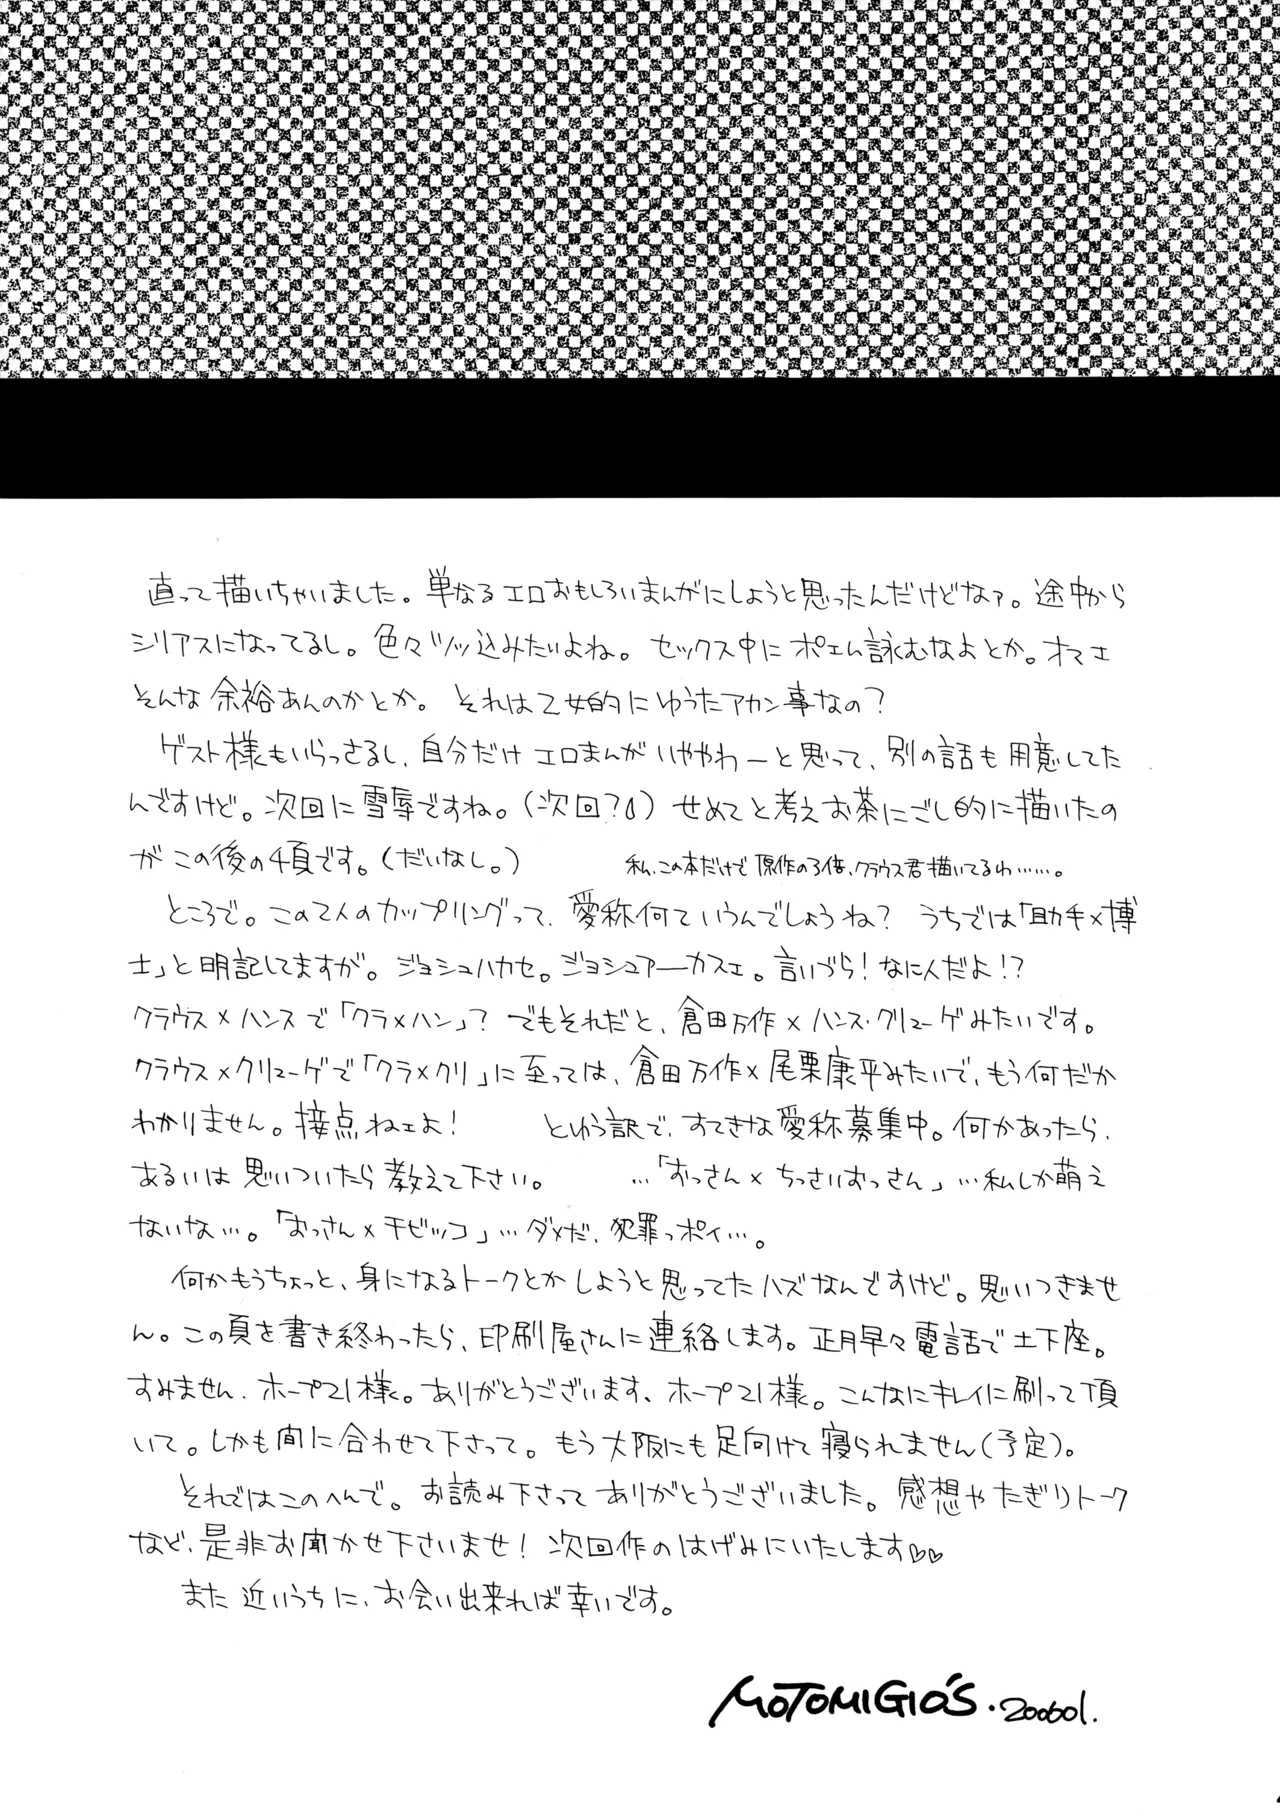 直って描いちゃいました。単なるエロおもしろいまんがにしようと思ったんだけどなァ。途中から
シリアスになってるし。色々ツッ込みたいよね。セックス中にポエム詠むなよとか。オマエ
そんな余裕あんのかとか。それは乙女的にゆうたアカン事なの？
ゲスト様もいらっさるし、自分だけエロまんがいややわーと思って、別の話も用意してた
んですけど。次回に雪辱ですね。(次回？) せめてと考えお茶にごし的に描いたの
がこの後の4頁です。(だいなし。)　私、この本だけで原作の3倍、クラウス君描いてるわ……。
ところで。この2人のカップリングって、愛称何ていうんでしょうね？ うちでは「助手×博
士」と明記してますが。ジョシュハカセ。ジョシュアーカスェ。言いづら！なに人だよ！？
クラウス×ハンスで「クラ×ハン」？ でもそれだと、倉田万作×ハンス・クリューゲみたいです。
クラウス×クリューゲで「クラ×クリ」に至っては、倉田万作×尾栗康平みたいで、もう何だか
わかりません。接点ねェよ！　という訳で、すてきな愛称募集中。何かあったら、
あるいは思いついたら教えて下さい。　…「おっさん×ちっさいおっさん」…私しか萌え
ないな…。「おっさん×チビッコ」…ダメだ、犯罪っポイ…。
何かもうちょっと、身になるトークとかしようと思ってたハズなんですけど。思いつきませ
ん。この頁を書き終わったら、印刷屋さんに連絡します。正月早々電話で土下座。
すみません、ホープ21様。ありがとうございます、ホープ21様。こんなにキレイに刷って頂
いて。しかも間に合わせて下さって。もう大阪にも足向けて寝られません(予定)。
それではこのへんで。お読み下さってありがとうございました。感想やたぎりトーク
など、是非お聞かせ下さいませ！次回作のはげみにいたします♡♡
また近いうちに、お会い出来れば幸いです。
MOTOMIGIO'S・200601.